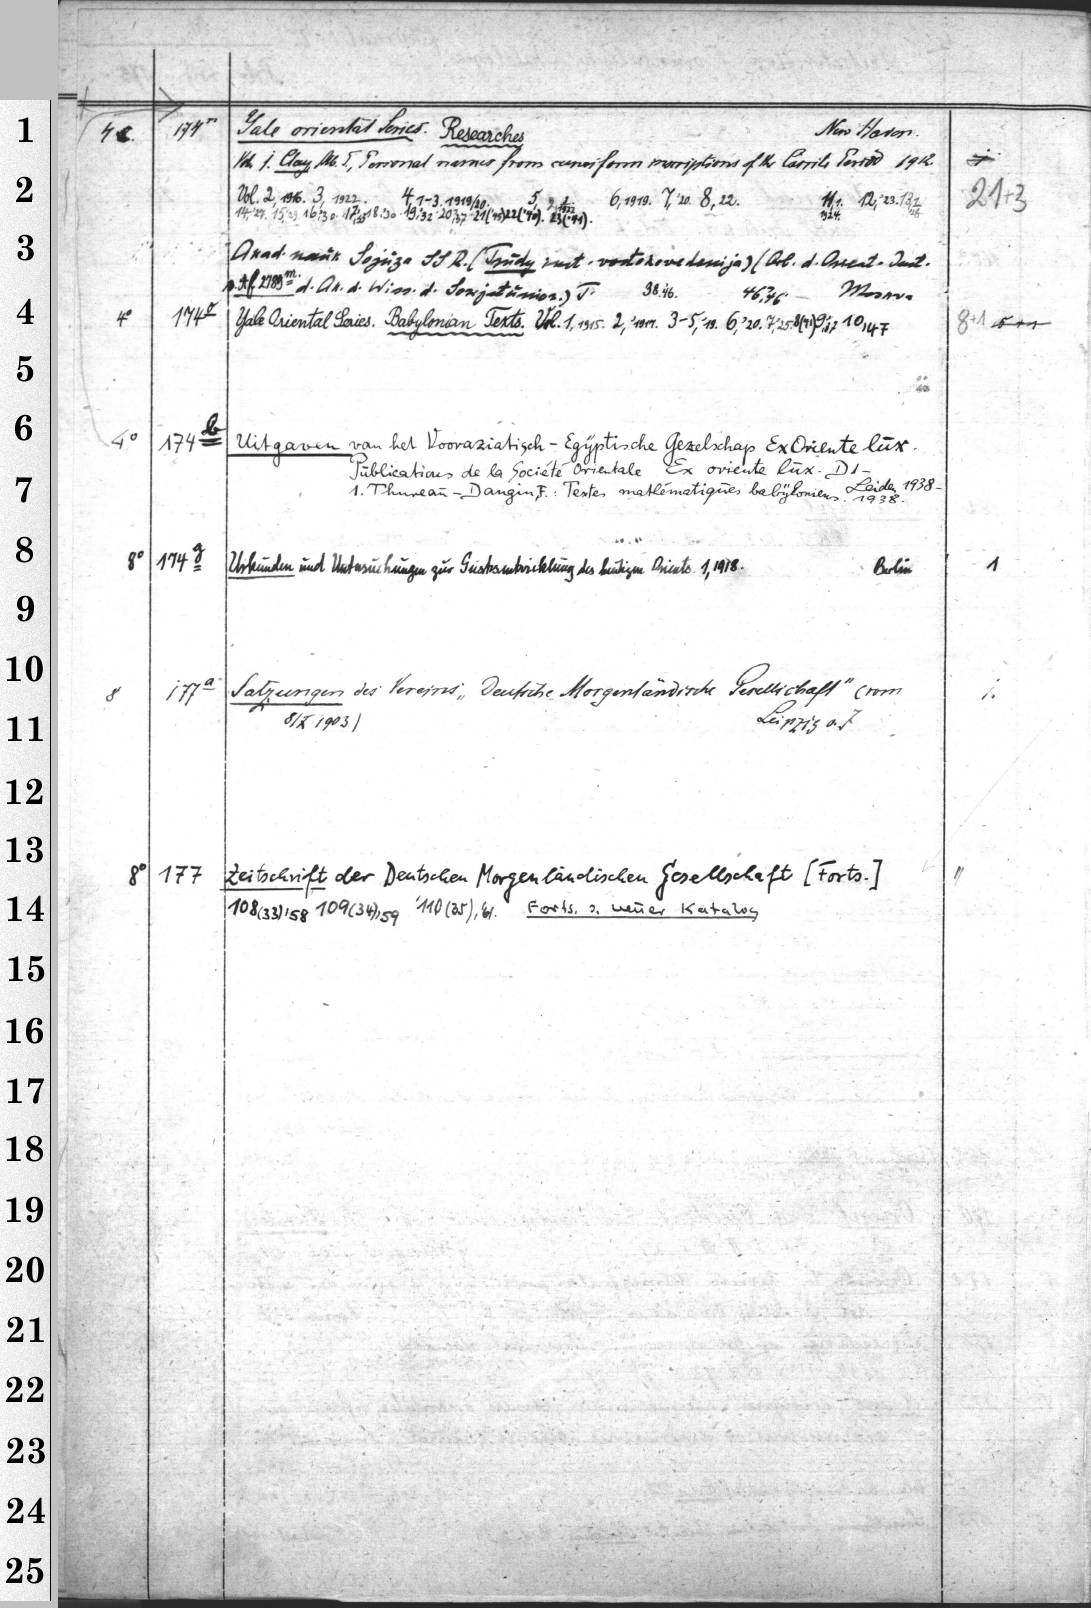 1
2
3
4
5
6
7
8
9
10
11
12
13
14
15
16
17
18
19
20
21
22
23
24
25
174n Yale oriental Series. Researches New Haven.
Clay, A. T., Personal names from cuneiform inscriptions of the Cassite Period 1912
Vol. 2, 1916. 3, 1922. 4, 1-3. 1919/20. 5, 6, 1919. 7, '20. 8, 22. 11, 1. 12, '23. 21+3
Akad. nauk Sojuza SSR. (Trudy inst. vostokovedenija) (Arb. d. Orient. Inst.
d. Ak. d. Wiss. d. Sowjetunion.) Moskva
4° 174 Yale Oriental Series. Babylonian Texts. Vol. 1, 1915. 2, 1917. 3-5, '19. 6, '20. 7, '25. 10, 47 8+1
4° 174 b Uitgaven van het Vooraziatisch-Egyptische Gezelschap Ex Oriente lux.
Publications de la Société Orientale Ex oriente lux. D 1-
1. Thureau-Dangin, F.: Textes mathématiques babyloniens. Leiden 1938-
1938.
8° 174 g Urkunden und Untersuchungen zur Geistesentwicklung des heutigen Orients 1, 1918. Berlin 1
8 177 a Satzungen des Vereins „Deutsche Morgenländische Gesellschaft" (vom 1.
8/X 1903) Leipzig o. J.
8° 177 Zeitschrift der Deutschen Morgenländischen Gesellschaft [Forts.] "
108(33),'58 109(34),'59 '110(35),'61. Forts. s. neuer Katalog